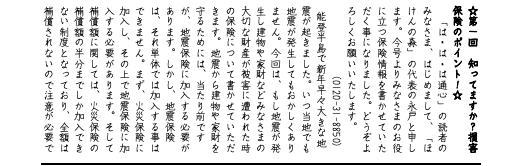 ☆第一回　知ってますか？損害
保険のポイント！☆
「は・は・は通心」の読者の
みなさま、はじめまして、「ほ
けんの森」の代表の永戸と申し
ます。今号よりみなさまのお役
に立つ保険情報を書かせていた
だく事になりました。どうぞよ
ろしくお願いいたします。
（0120-31-8950）
能登半島で新年早々大きな地
震が起きました。いつ当地でも
地震が発生してもおかしくあり
ません。今回は、もし地震が発
生し建物や家財などみなさまの
大切な財産が被害に遭われた時
の保険について書かせていただ
きます。地震から建物や家財を
守るためには、当たり前です
が、地震保険に加入する必要が
あります。しかし、地震保険
は、それ単体では加入する事は
できません。まず、火災保険に
加入し、その上で地震保険に加
入する必要があります。そして、
補償額に関しては、火災保険の
補償額の半分までしか加入でき
ない制度となっており、全額は
補償されないので注意が必要で